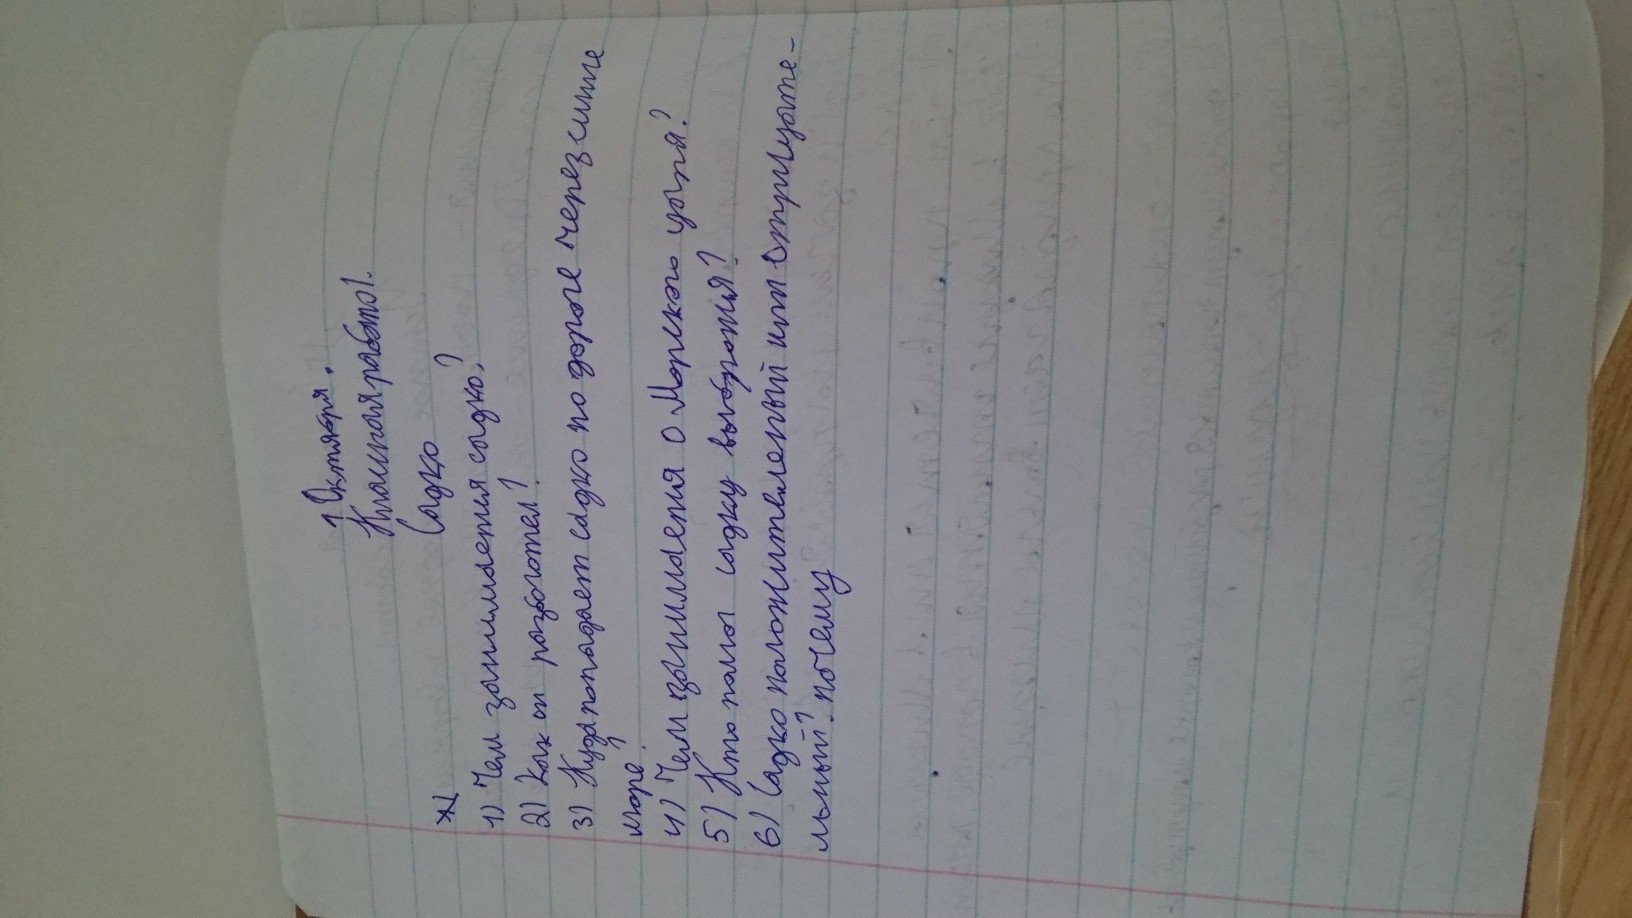 1 Октября.
Классная работа.
Садко
*)
1) Чем занимается садко?
2) Как он разбогател?
3) Куда попадает садко по дороге через синие
море?
4) Чем занимается о Морского царя?
5) Кто помог садку выбратся?
6) Садко положителеный или отрицате-
льный? почему